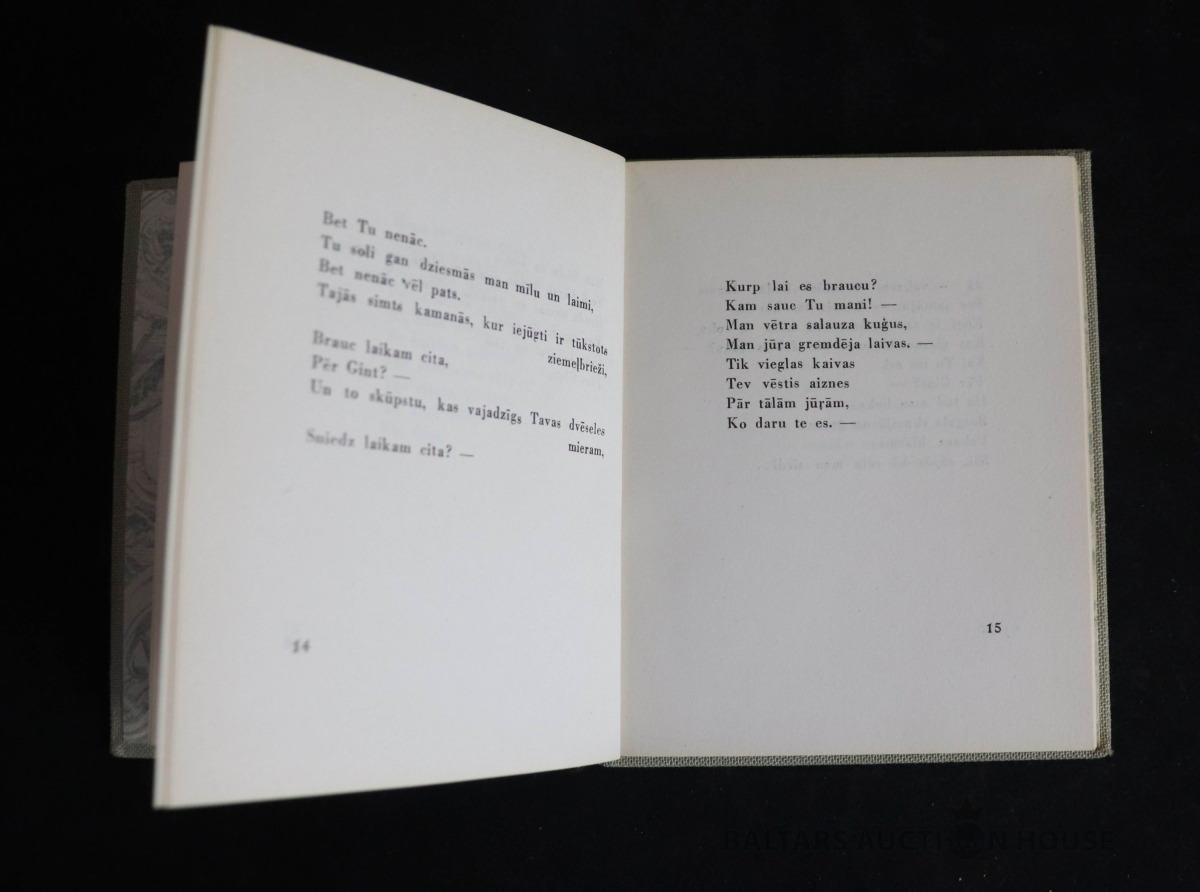 Bet Tu nenāc.
Tu soli gan dziesmās man mīlu un laimi,
Bet nenāc vēl pats.
Tajās simts kamanās, kur iejūgti ir tūkstots
ziemeļbrieži,
Brauc laikam cita,
Pēr Gint? —
Un to skūpstu, kas vajadzīgs Tavas dvēseles
mieram,
Sniedz laikam cita? —
14
Kurp lai es braucu?
Kam sauc Tu mani! —
Man vētra salauza kuģus,
Man jūŗa gremdēja laivas. —
Tik vieglas kaivas
Tev vēstis aiznes
Pār tālām jūŗām,
Ko daru te es. —
15
BALTARS AUCTION HOUSE